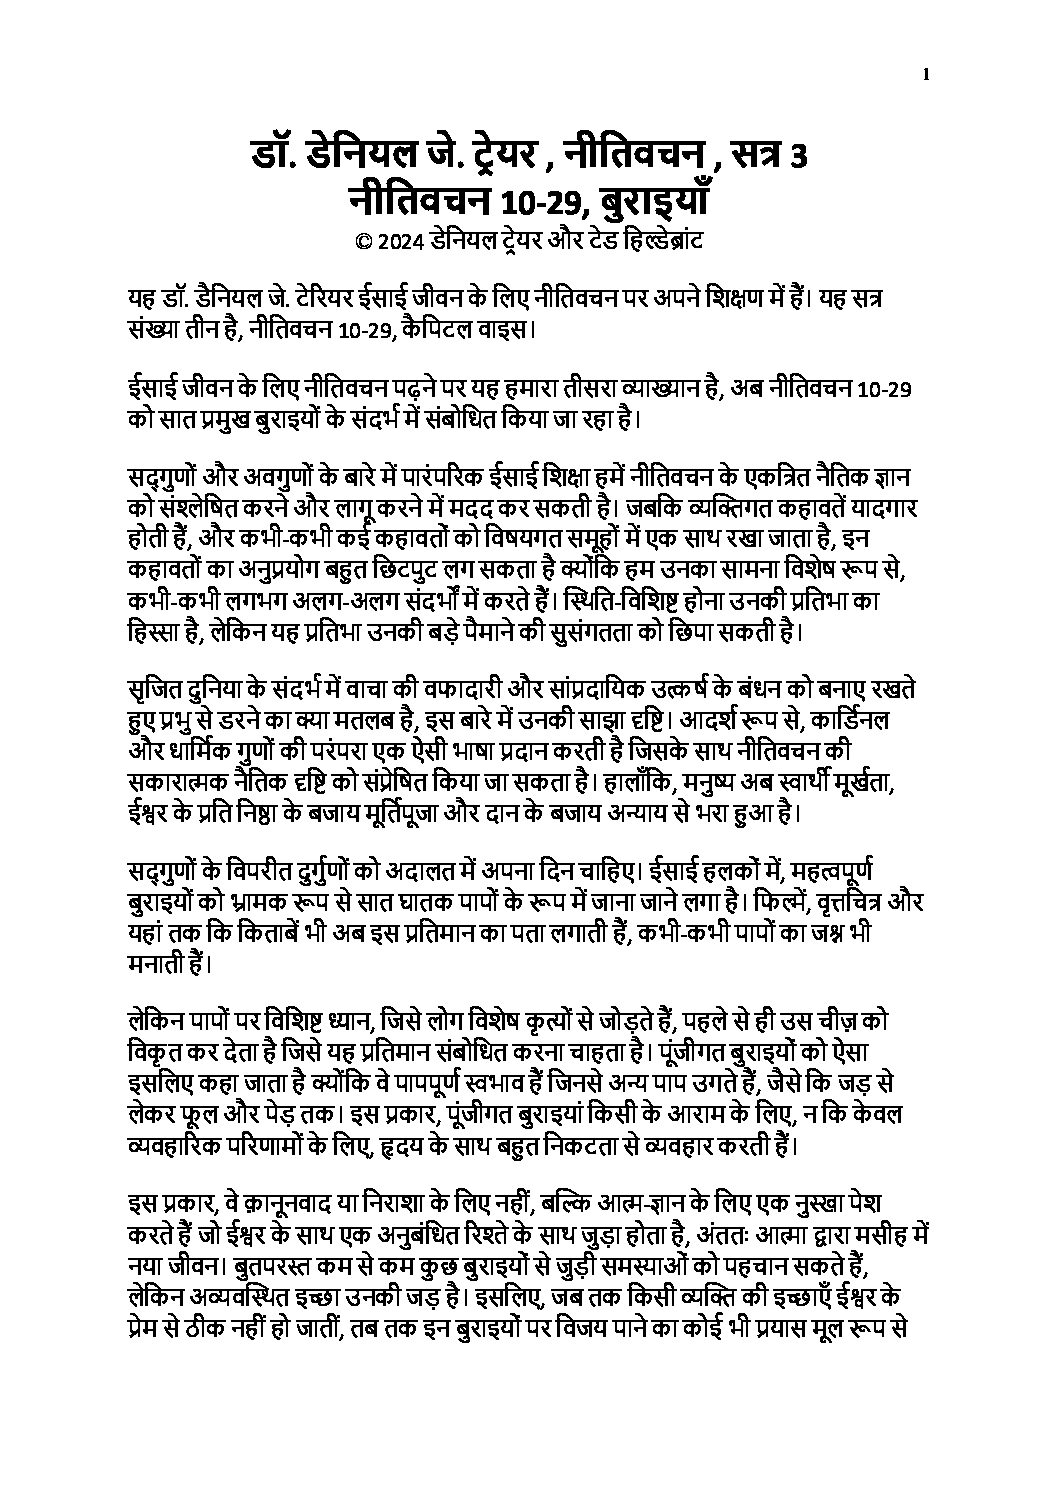 1
डॉ. डेनियल जे. ट्रेयर , नीतिवचन , सत्र 3
नीतिवचन 10-29, बुराइयाँ
© 2024 डेनियल ट्रेयर और टेड हिल्डेब्रांट
यह डॉ. डैनियल जे. टेरियर ईसाई जीवन के लिए नीतिवचन पर अपने शिक्षण में हैं। यह सत्र
संख्या तीन है, नीतिवचन 10-29, कैपिटल वाइस।
ईसाई जीवन के लिए नीतिवचन पढ़ने पर यह हमारा तीसरा व्याख्यान है, अब नीतिवचन 10-29
को सात प्रमुख बुराइयों के संदर्भ में संबोधित किया जा रहा है।
सद्गुणों और अवगुणों के बारे में पारंपरिक ईसाई शिक्षा हमें नीतिवचन के एकत्रित नैतिक ज्ञान
को संश्लेषित करने और लागू करने में मदद कर सकती है। जबकि व्यक्तिगत कहावतें यादगार
होती हैं, और कभी-कभी कई कहावतों को विषयगत समूहों में एक साथ रखा जाता है, इन
कहावतों का अनुप्रयोग बहुत छिटपुट लग सकता है क्योंकि हम उनका सामना विशेष रूप से,
कभी-कभी लगभग अलग-अलग संदर्भों में करते हैं। स्थिति-विशिष्ट होना उनकी प्रतिभा का
हिस्सा है, लेकिन यह प्रतिभा उनकी बड़े पैमाने की सुसंगतता को छिपा सकती है।
सृजित दुनिया के संदर्भ में वाचा की वफादारी और सांप्रदायिक उत्कर्ष के बंधन को बनाए रखते
हुए प्रभु से डरने का क्या मतलब है, इस बारे में उनकी साझा दृष्टि। आदर्श रूप से, कार्डिनल
और धार्मिक गुणों की परंपरा एक ऐसी भाषा प्रदान करती है जिसके साथ नीतिवचन की
सकारात्मक नैतिक दृष्टि को संप्रेषित किया जा सकता है। हालाँकि, मनुष्य अब स्वार्थी मूर्खता,
ईश्वर के प्रति निष्ठा के बजाय मूर्तिपूजा और दान के बजाय अन्याय से भरा हुआ है।
सद्गुणों के विपरीत दुर्गुणों को अदालत में अपना दिन चाहिए। ईसाई हलकों में, महत्वपूर्ण
बुराइयों को भ्रामक रूप से सात घातक पापों के रूप में जाना जाने लगा है। फिल्में, वृत्तचित्र और
यहां तक कि किताबें भी अब इस प्रतिमान का पता लगाती हैं, कभी-कभी पापों का जश्न भी
मनाती हैं।
लेकिन पापों पर विशिष्ट ध्यान, जिसे लोग विशेष कृत्यों से जोड़ते हैं, पहले से ही उस चीज़ को
विकृत कर देता है जिसे यह प्रतिमान संबोधित करना चाहता है। पूंजीगत बुराइयों को ऐसा
इसलिए कहा जाता है क्योंकि वे पापपूर्ण स्वभाव हैं जिनसे अन्य पाप उगते हैं, जैसे कि जड़ से
लेकर फूल और पेड़ तक। इस प्रकार, पूंजीगत बुराइयां किसी के आराम के लिए, न कि केवल
व्यवहारिक परिणामों के लिए, हृदय के साथ बहुत निकटता से व्यवहार करती हैं।
इस प्रकार, वे क़ानूनवाद या निराशा के लिए नहीं, बल्कि आत्म-ज्ञान के लिए एक नुस्खा पेश
करते हैं जो ईश्वर के साथ एक अनुबंधित रिश्ते के साथ जुड़ा होता है, अंततः आत्मा द्वारा मसीह में
नया जीवन। बुतपरस्त कम से कम कुछ बुराइयों से जुड़ी समस्याओं को पहचान सकते हैं,
लेकिन अव्यवस्थित इच्छा उनकी जड़ है। इसलिए, जब तक किसी व्यक्ति की इच्छाएँ ईश्वर के
प्रेम से ठीक नहीं हो जातीं, तब तक इन बुराइयों पर विजय पाने का कोई भी प्रयास मूल रूप से